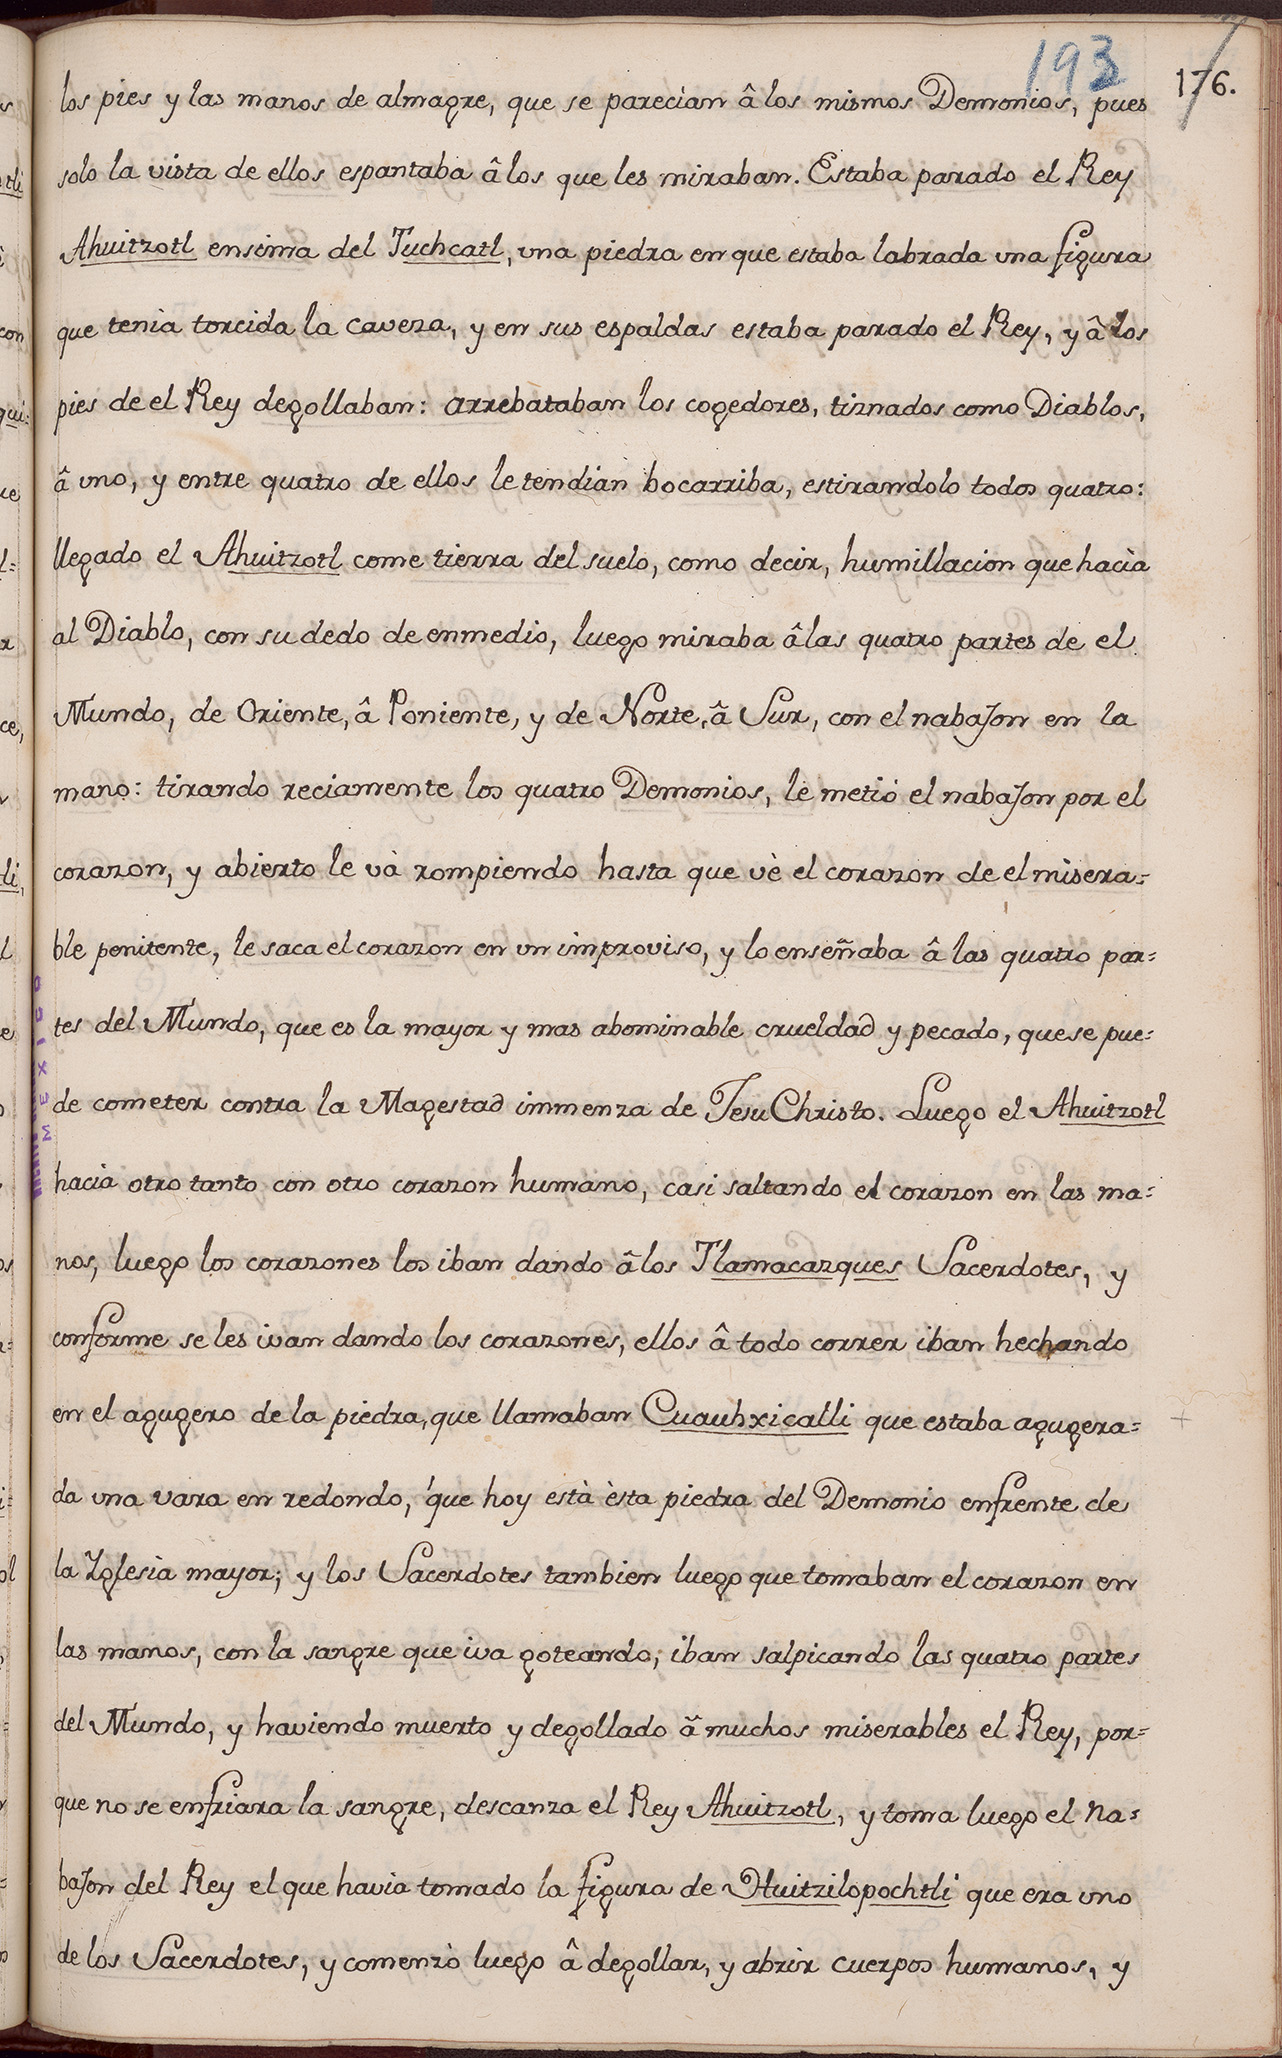 193 176.
los pies y las manos de almagre, que se parecían â los mismos Demonios, pues
solo la vista de ellos espantaba â los que les miraban. Estaba parado el Rey
Ahuitzotl ensima del Tuchcatl, una piedra en que estaba labrada una figura
que tenia torcida la caveza, y en sus espaldas estaba parado el Rey, y â los
pies de el Rey degollaban: arrebataban los cogedores, tiznados como Diablos,
â uno, y entre quatro de ellos le tendian bocarriba, estirandolo todos quatro:
llegado el Ahuitzotl come tierra del suelo, como decir, humillacion que hacìa
al Diablo, con su dedo de enmedio, luego miraba â las quatro partes de el
Mundo, de Oriente, â Poniente, y de Norte, â Sur, con el nabaJon en la
mano: tirando reciamente los quatro Demonios, le metiò el nabaJon por el
corazon, y abierto le và rompiendo hasta que vè el corazon de el misera=
ble penitente, le saca el corazon en un improviso, y lo enseñaba â las quatro par=
tes del Mundo, que es la mayor y mas abominable crueldad y pecado, que se pue=
de cometer contra la Magestad immenza de Jesu Christo. Luego el Ahuitzotl
hacia otro tanto con otro corazon humano, casi saltando el corazon en las ma=
nos, luego los corazones los iban dando â los Tlamacazques Sacerdotes, y
conforme se les ivan dando los corazones, ellos â todo correr iban hechando
en el agugero de la piedra, que llamaban Cuauhxicalli que estaba agugera=
da una vara en redondo, que hoy està èsta piedra del Demonio enfrente de
la Yglesia mayor; y los Sacerdotes tambien luego que tomaban el corazon en
las manos, con la sangre que iva goteando, iban salpicando las quatro partes
del Mundo, y haviendo muerto y degollado â muchos miserables el Rey, por=
que no se enfriara la sangre, descanza el Rey Ahuitzotl, y toma luego el na=
baJon del Rey el que havia tomado la figura de Huitzilopochtli que era uno
de los Sacerdotes, y comenzò luego â degollar, y abrir cuerpos humanos, y